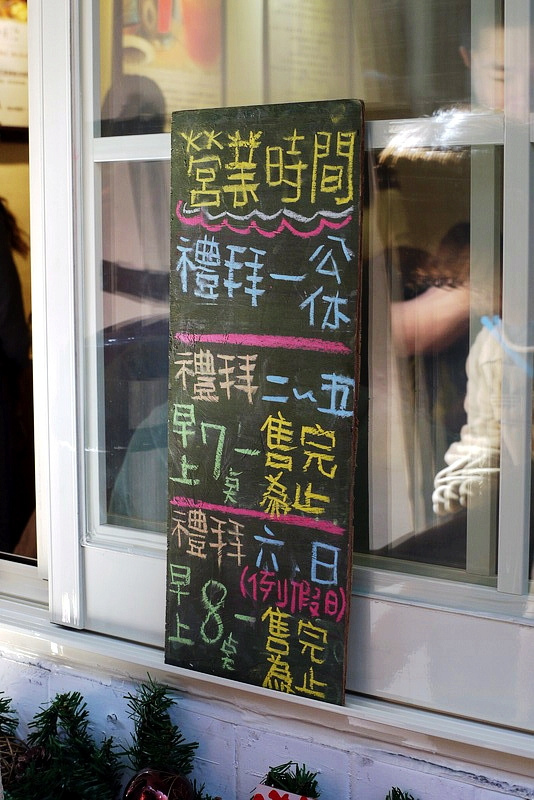 營業時間
禮拜一公休
禮拜二~五
早上7點-售完為止
禮拜六、日
(例假日)
早上8點-售完為止